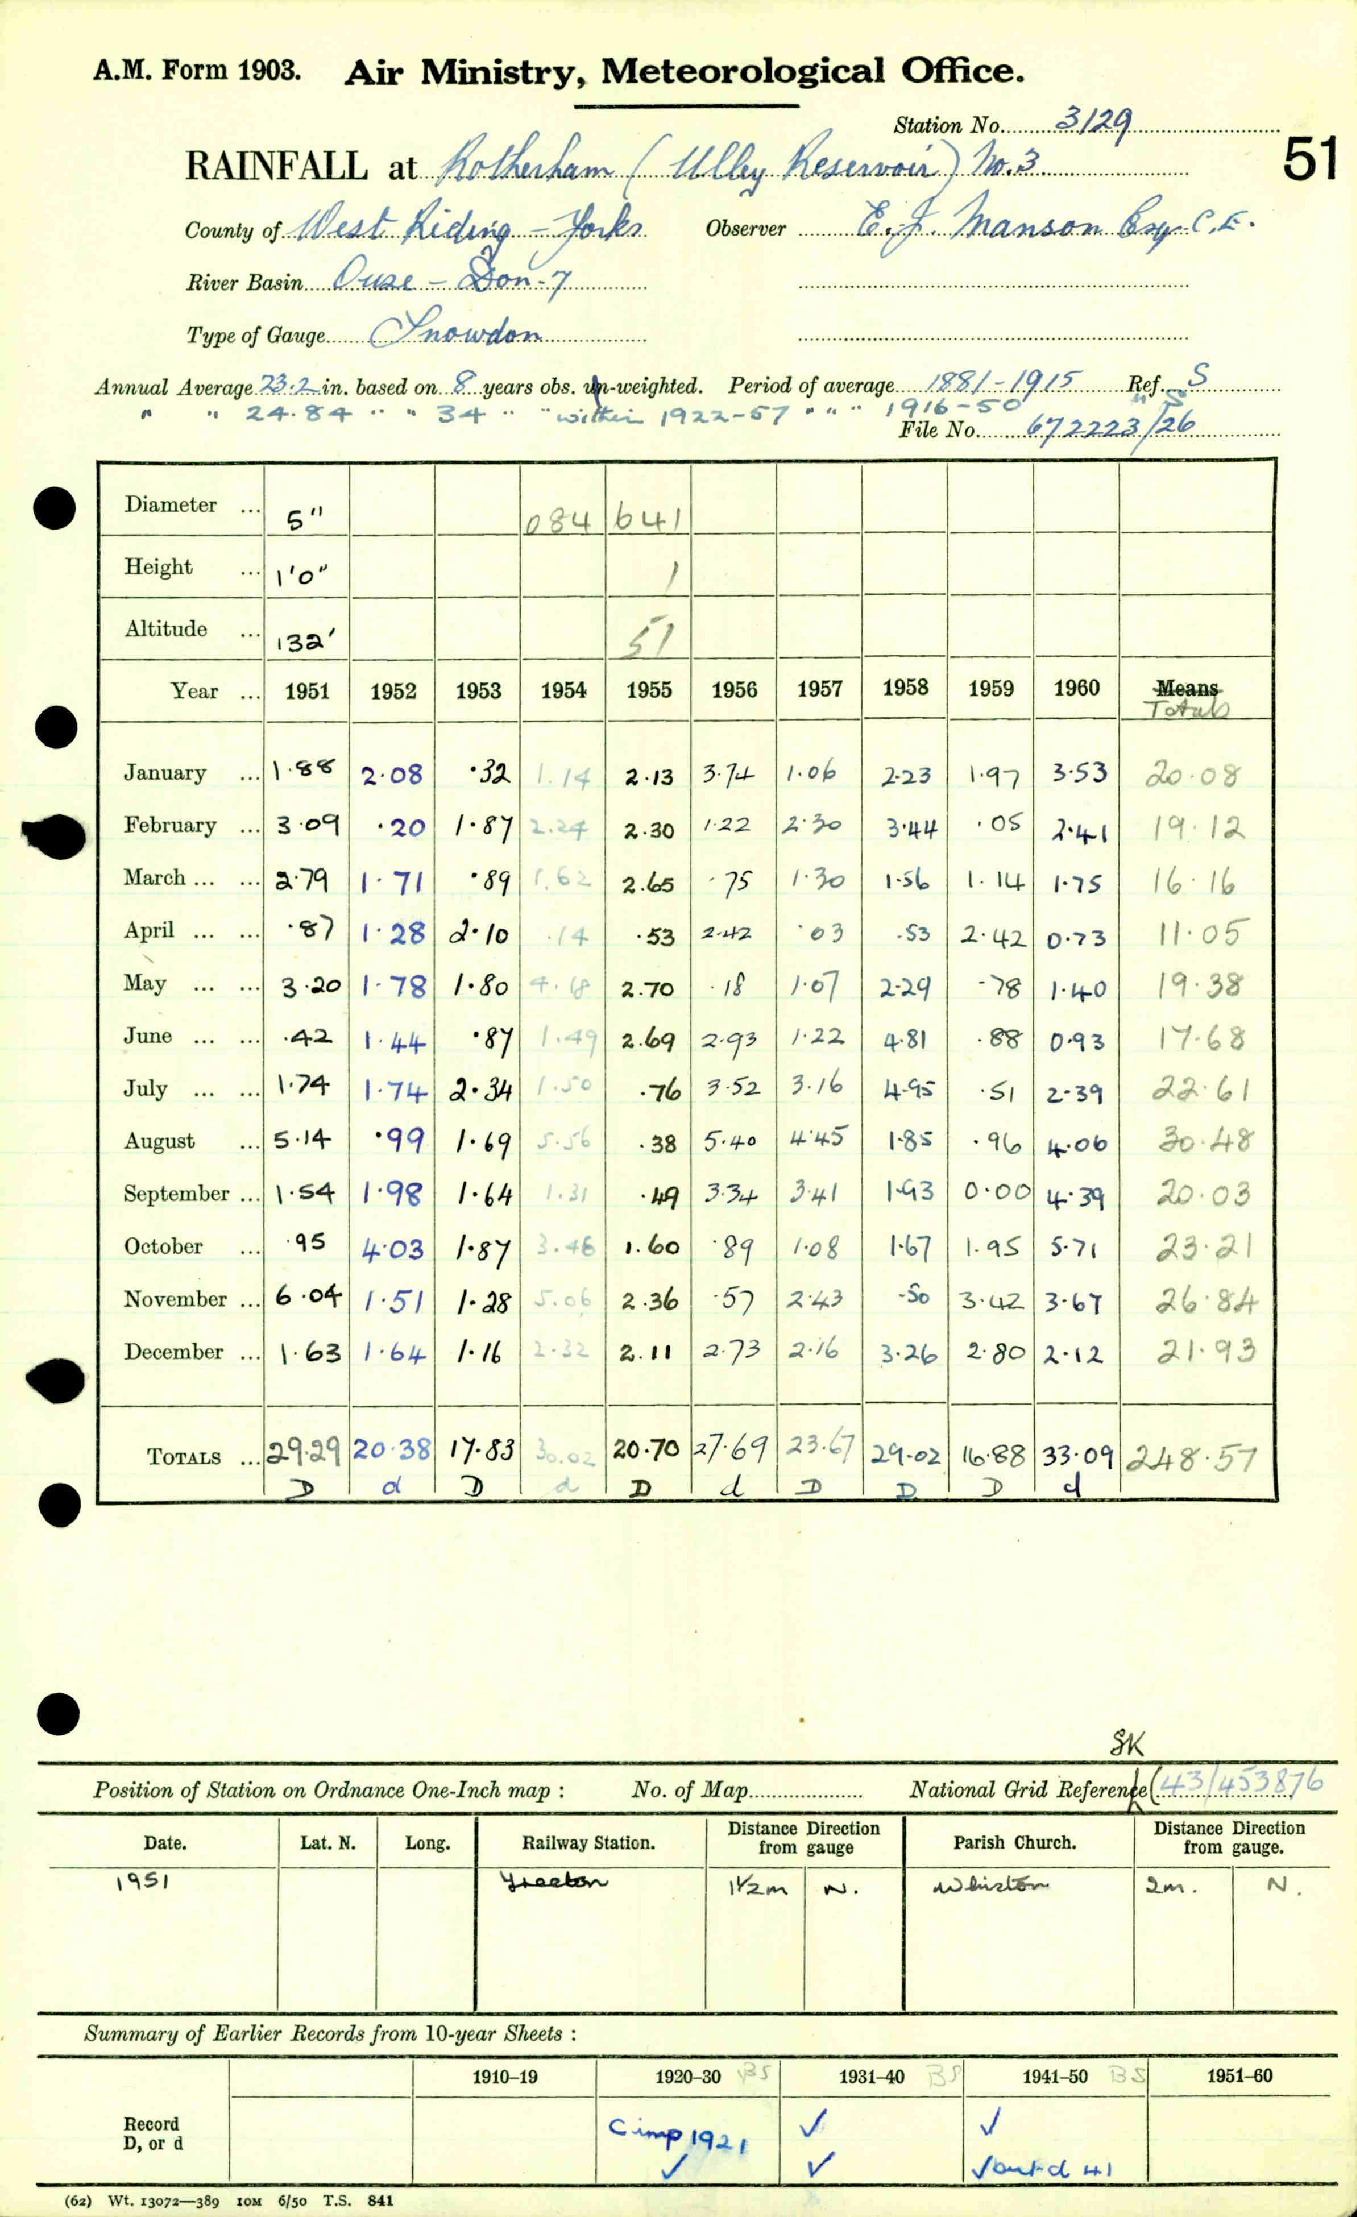 A.M. Form 1903. Air Ministry, Meteorological Office.
Station No. 3129
51
RAINFALL at Rotherham (Ulley Reservoir) No. 3.
County of West Riding - Yorks Observer E. J. Manson Esq. C.E.
River Basin Ouse - Don - 7
Type of Gauge Snowdon
Annual Average 23.2 in. based on 8 years obs. un-weighted. Period of average 1881-1915 Ref. S
" " 24.84 " " 34 " " within 1922-57 " " " 1916-50 " S
File No. 672223/26
Diameter ... 5" 084 641
Height ... 1'0" 1
Altitude ... 132' 51
Year ... 1951 1952 1953 1954 1955 1956 1957 1958 1959 1960 Means
Totals
January ... 1.88 2.08 .32 1.14 2.13 3.74 1.06 2.23 1.97 3.53 20.08
February ... 3.09 .20 1.87 2.24 2.30 1.22 2.30 3.44 .05 2.41 19.12
March ... ... 2.79 1.71 .89 1.62 2.65 .75 1.30 1.56 1.14 1.75 16.16
April ... ... .87 1.28 2.10 .14 .53 2.42 .03 .53 2.42 0.73 11.05
May ... ... 3.20 1.78 1.80 4.18 2.70 .18 1.07 2.29 .78 1.40 19.38
June ... ... .42 1.44 .87 1.49 2.69 2.93 1.22 4.81 .88 0.93 17.68
July ... ... 1.74 1.74 2.34 1.50 .76 3.52 3.16 4.95 .51 2.39 22.61
August ... 5.14 .99 1.69 5.56 .38 5.40 4.45 1.85 .96 4.06 30.48
September ... 1.54 1.98 1.64 1.31 .49 3.34 3.41 1.93 0.00 4.39 20.03
October ... .95 4.03 1.87 3.46 1.60 .89 1.08 1.67 1.95 5.71 23.21
November ... 6.04 1.51 1.28 5.06 2.36 .57 2.43 .50 3.42 3.67 26.84
December ... 1.63 1.64 1.16 2.32 2.11 2.73 2.16 3.26 2.80 2.12 21.93
TOTALS ... 29.29 20.38 17.83 30.02 20.70 27.69 23.67 29.02 16.88 33.09 248.57
D d D d D d D D D d
SK
Position of Station on Ordnance One-Inch map : No. of Map National Grid Reference (43/453876
Date. Lat. N. Long. Railway Station. Distance from Direction gauge Parish Church. Distance from Direction gauge.
1951 Treeton 1½m N. Whiston 2m. N.
Summary of Earlier Records from 10-year Sheets :
1910–19 1920–30 BS 1931–40 BS 1941–50 BS 1951–60
Record
D, or d
C imp 1921 ✓ ✓
✓ ✓ ✓ but d 41
(62) Wt. 13072—389 10M 6/50 T.S. 841